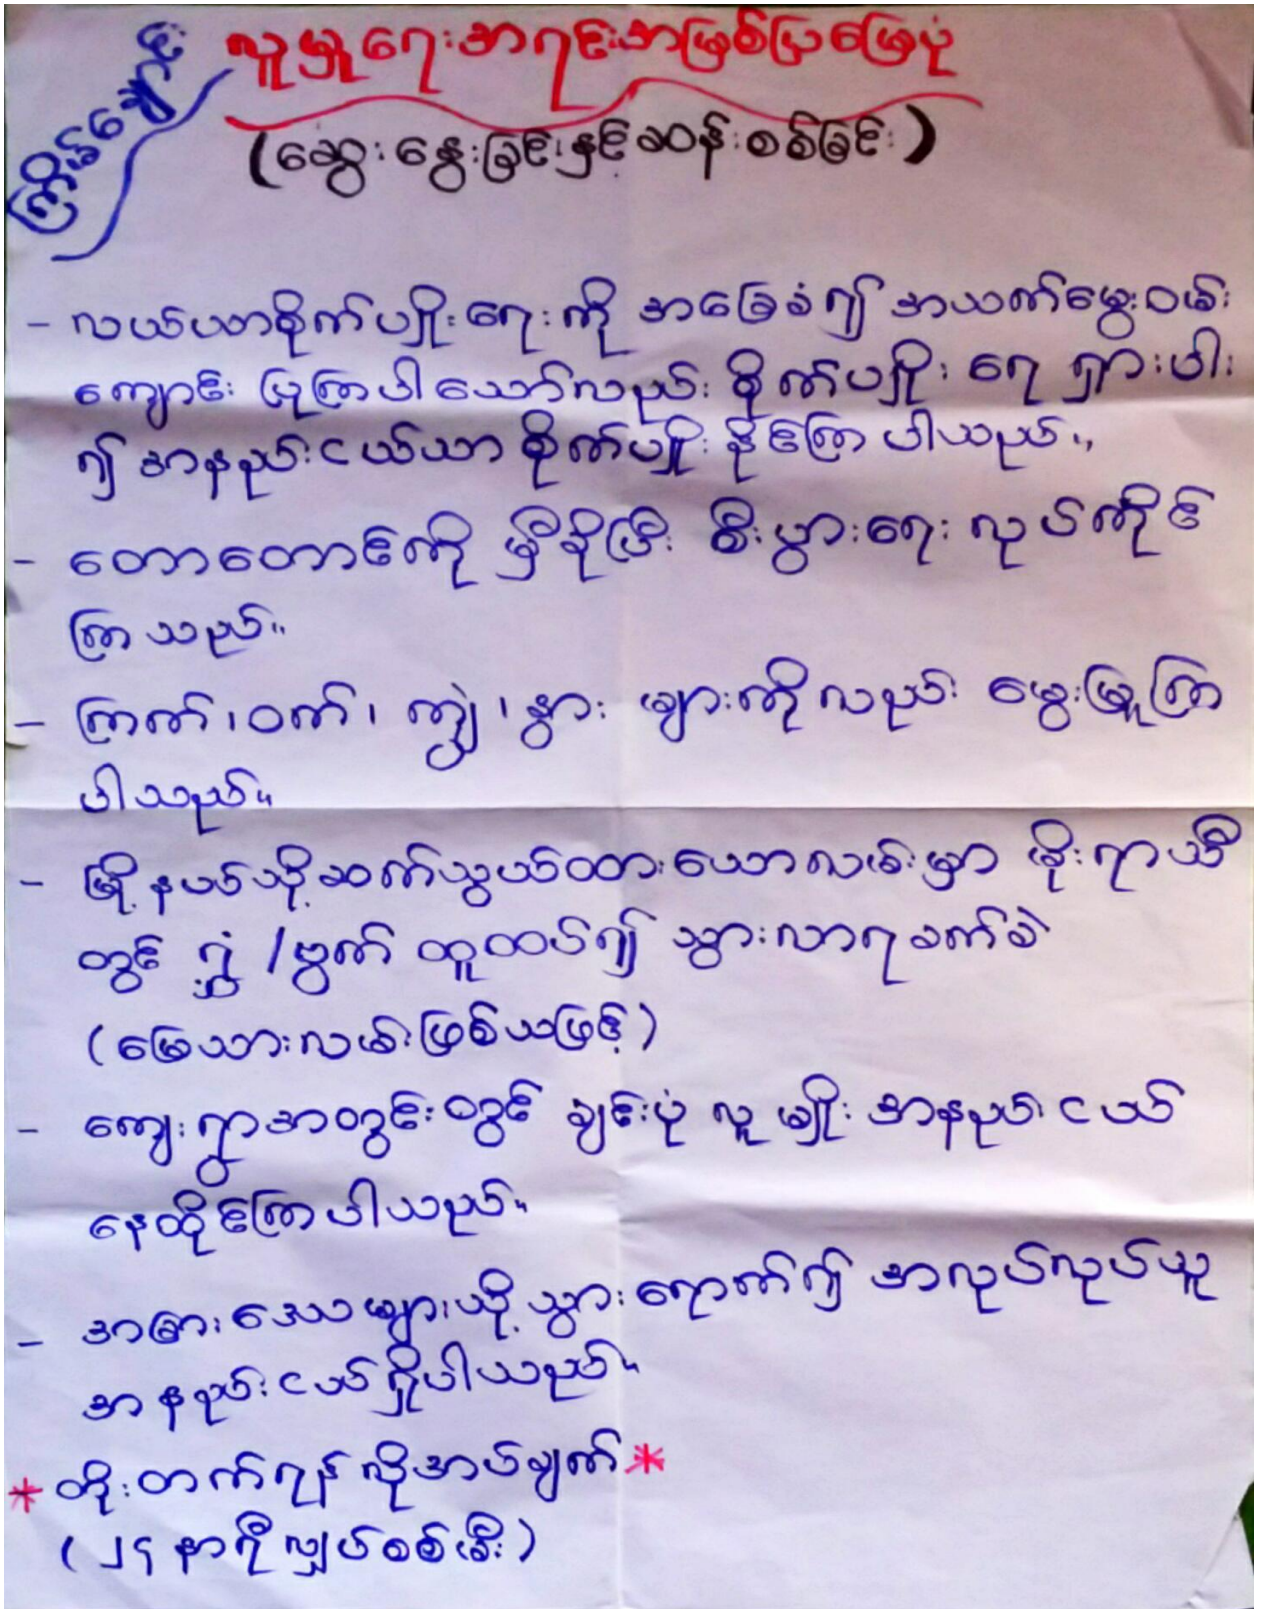 ကြိမ်ချောင်း
လူမှုရေးအရင်းအမြစ်ပြမြေပုံ
(ဆွေးနွေးခြင်းနှင့်ဆန်းစစ်ခြင်း)
- လယ်ယာစိုက်ပျိုးရေးကို အခြေခံ၍ အသက်မွေးဝမ်း
ကျောင်း ပြုကြပါသော်လည်း စိုက်ပျိုး ရေ ရှားပါး
၍ အနည်းငယ်သာ စိုက်ပျိုး နိုင်ကြ ပါသည်။
- တောတောင်ကို မှီခိုပြီး စီးပွားရေး လုပ်ကိုင်
ကြ သည်။
- ကြက်၊ ဝက်၊ ကျွဲ၊ နွား များကိုလည်း မွေးမြူကြ
ပါသည်။
- မြို့နယ်သို့ဆက်သွယ်ထားသောလမ်းမှာ မိုးရာသီ
တွင် ရွှံ့/ဗွက် ထူထပ်၍ သွားလာရခက်ခဲ
(မြေသားလမ်းဖြစ်သဖြင့်)
- ကျေးရွာအတွင်းတွင် ချင်းပုံ လူမျိုး အနည်းငယ်
နေထိုင်ကြပါသည်။
- အခြားဒေသများသို့ သွားရောက်၍ အလုပ်လုပ်သူ
အနည်းငယ်ရှိပါသည်။
* တိုးတက်ရန်လိုအပ်ချက် *
(၂၄ နာရီလျှပ်စစ်မီး)